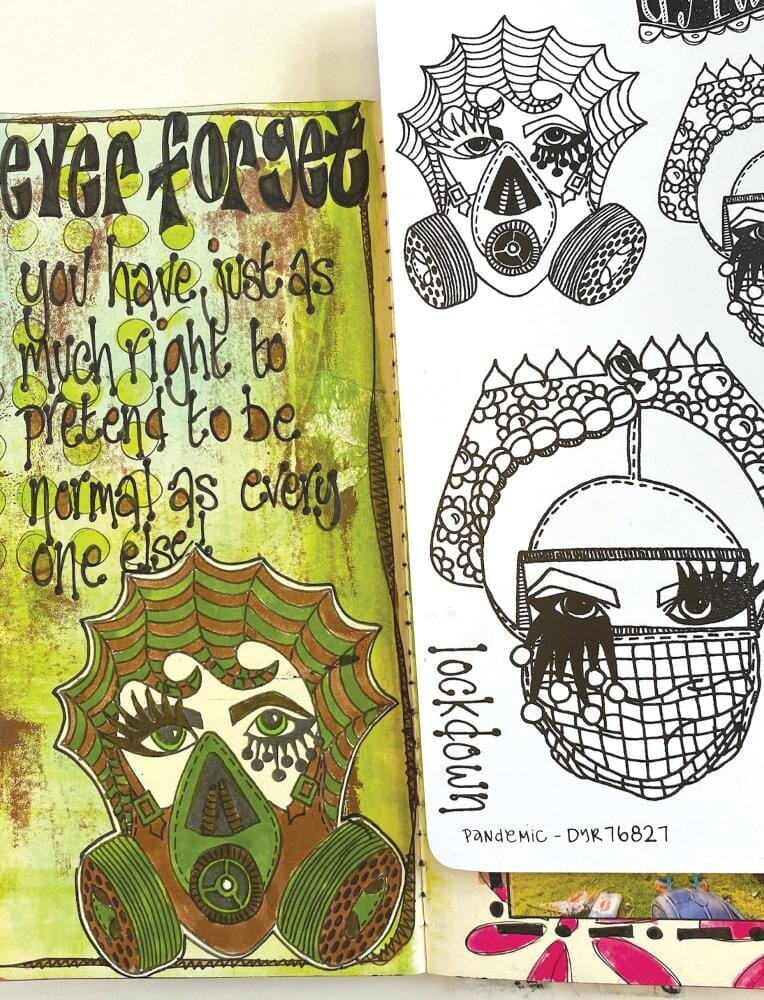 ever forget
you have just as
much right to
pretend to be
normal as every
one else!
lockdown
Pandemic - DYR76827